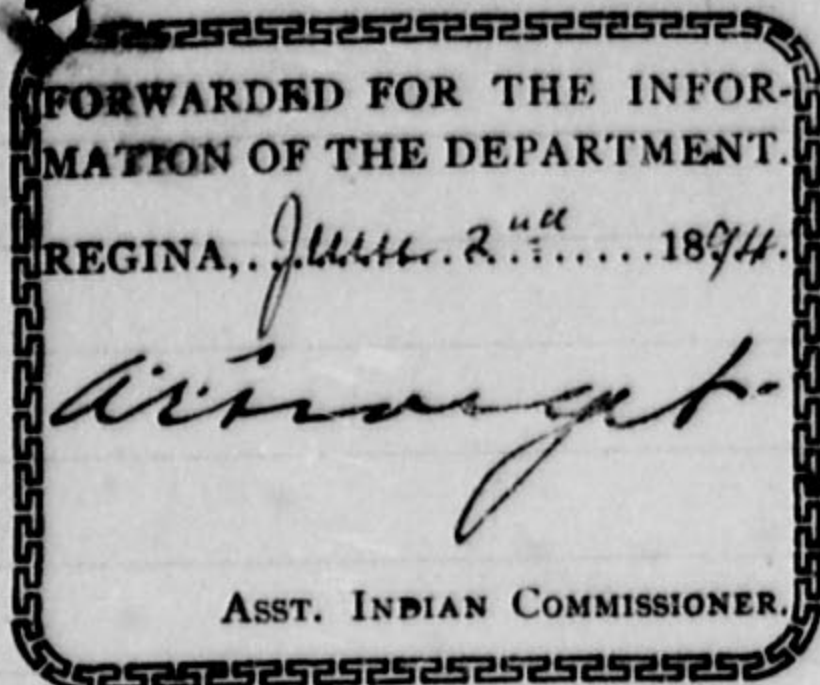 FORWARDED FOR THE INFOR-
MATION OF THE DEPARTMENT.
REGINA, June 2nd 1894.
A. E. Forget.
ASST. INDIAN COMMISSIONER.